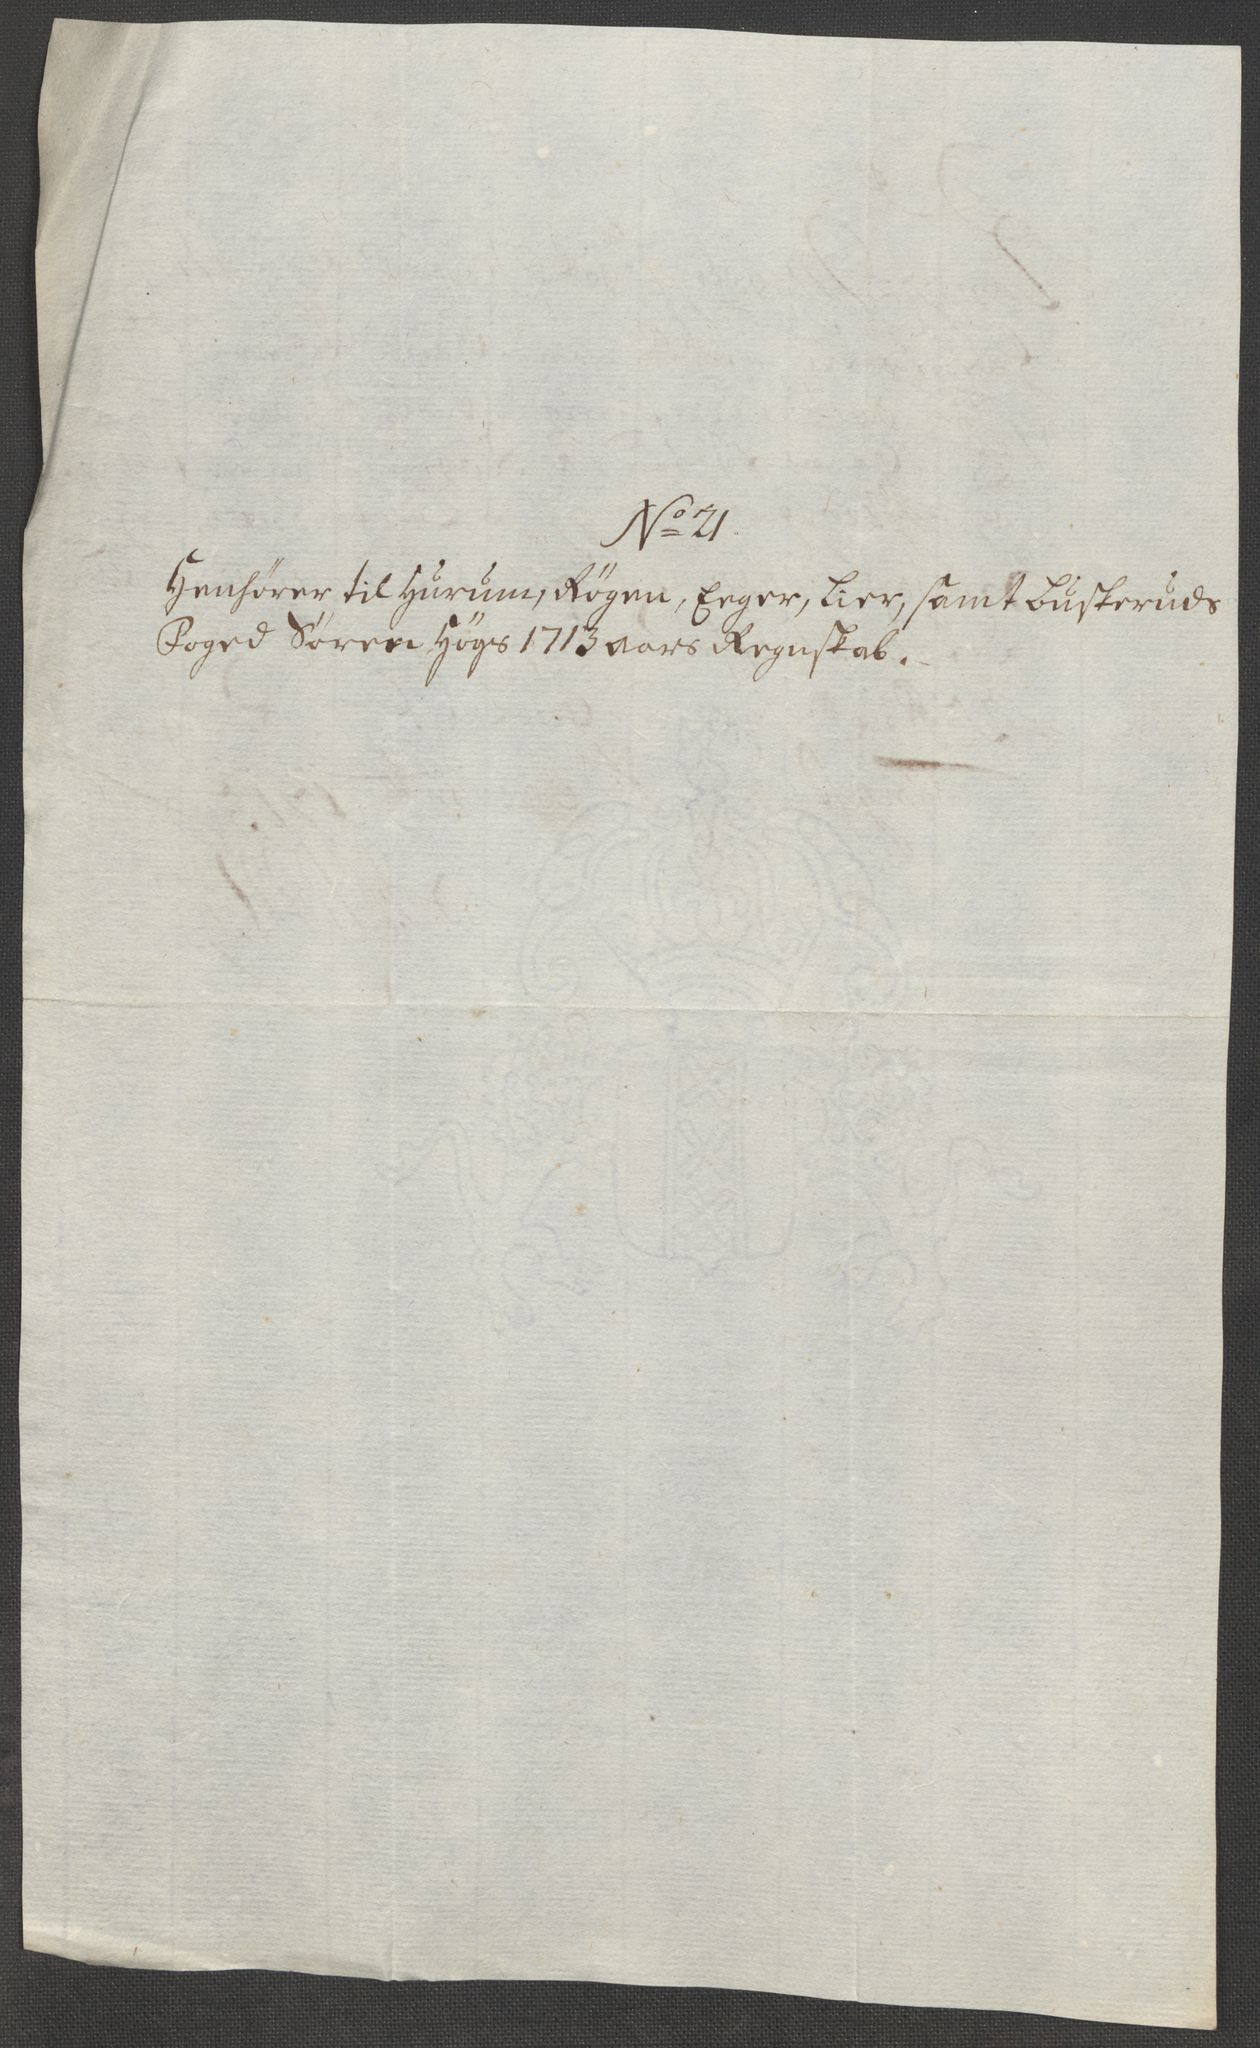 No 21.
Henhörer til Hurum, Rögen, Eeger, Lier, samt Buskeruds
Foged Sören Högs 1713 aars Regnskab.